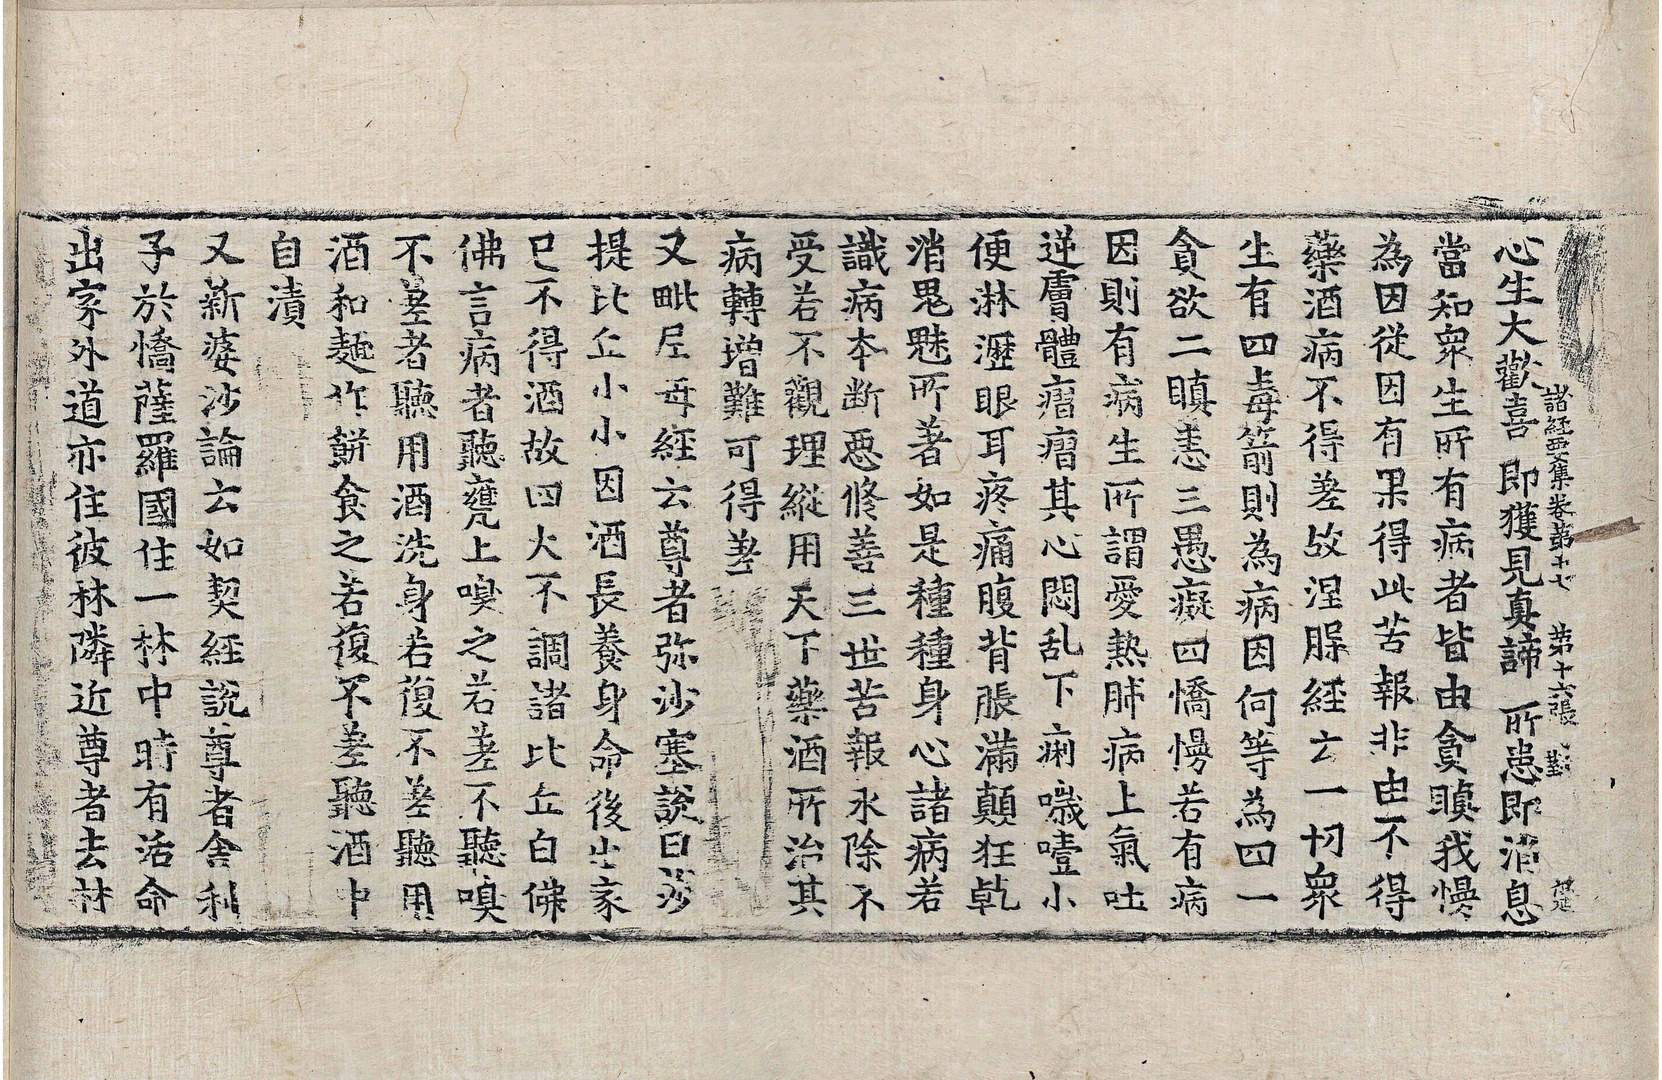 諸經要集卷第十七 第十六張 對
心生大歡喜 即獲見真諦 所患即消息
當知衆生所有病者皆由貪瞋我慢
為因從因有果得此苦報非由不得
藥酒病不得差故涅脲經云一切衆
生有四毒箭則為病因何等為四一
貪欲二瞋恚三愚癡四憍慢若有病
因則有病生所謂愛熱肺病上氣吐
逆膚體㾦㾦其心悶乱下痢噦噎小
便淋瀝眼耳疼痛腹背脹滿顛狂乾
消鬼魅所著如是種種身心諸病若
識病本断惡修善三世苦報永除不
受若不觀理縱用天下藥酒所治其
病轉增難可得差
又毗尼母經云尊者弥沙塞說曰莎
提比丘小小因酒長養身命後出家
已不得酒故四大不調諸比丘白佛
佛言病者聽甕上嗅之若差不聽嗅
不差者聽用酒洗身若復不差聽用
酒和麵作餅食之若復不差聽酒中
自漬
又新婆沙論云如契經說尊者舍利
子於憍薩羅國住一林中時有活命
出家外道亦住彼林隣近尊者去林